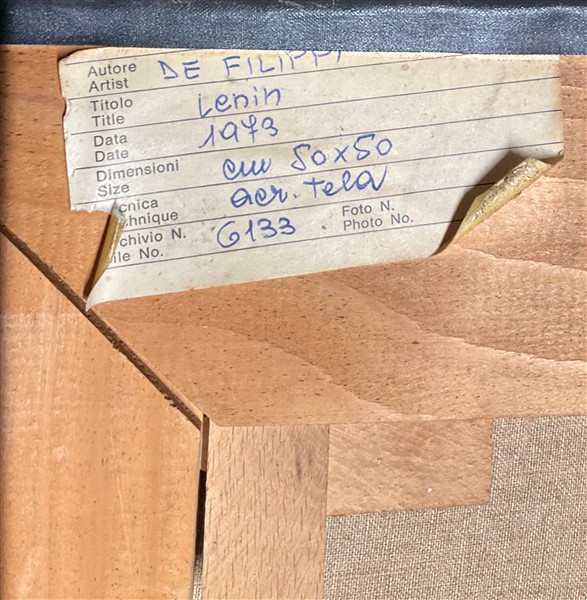 Autore DE FILIPPI
Artist
Titolo Lenin
Title
Data 1973
Date
Dimensioni cm 50x50
Size
cnica acr. tela
chnique
chivio N. 6133 Foto N.
ile No. Photo No.